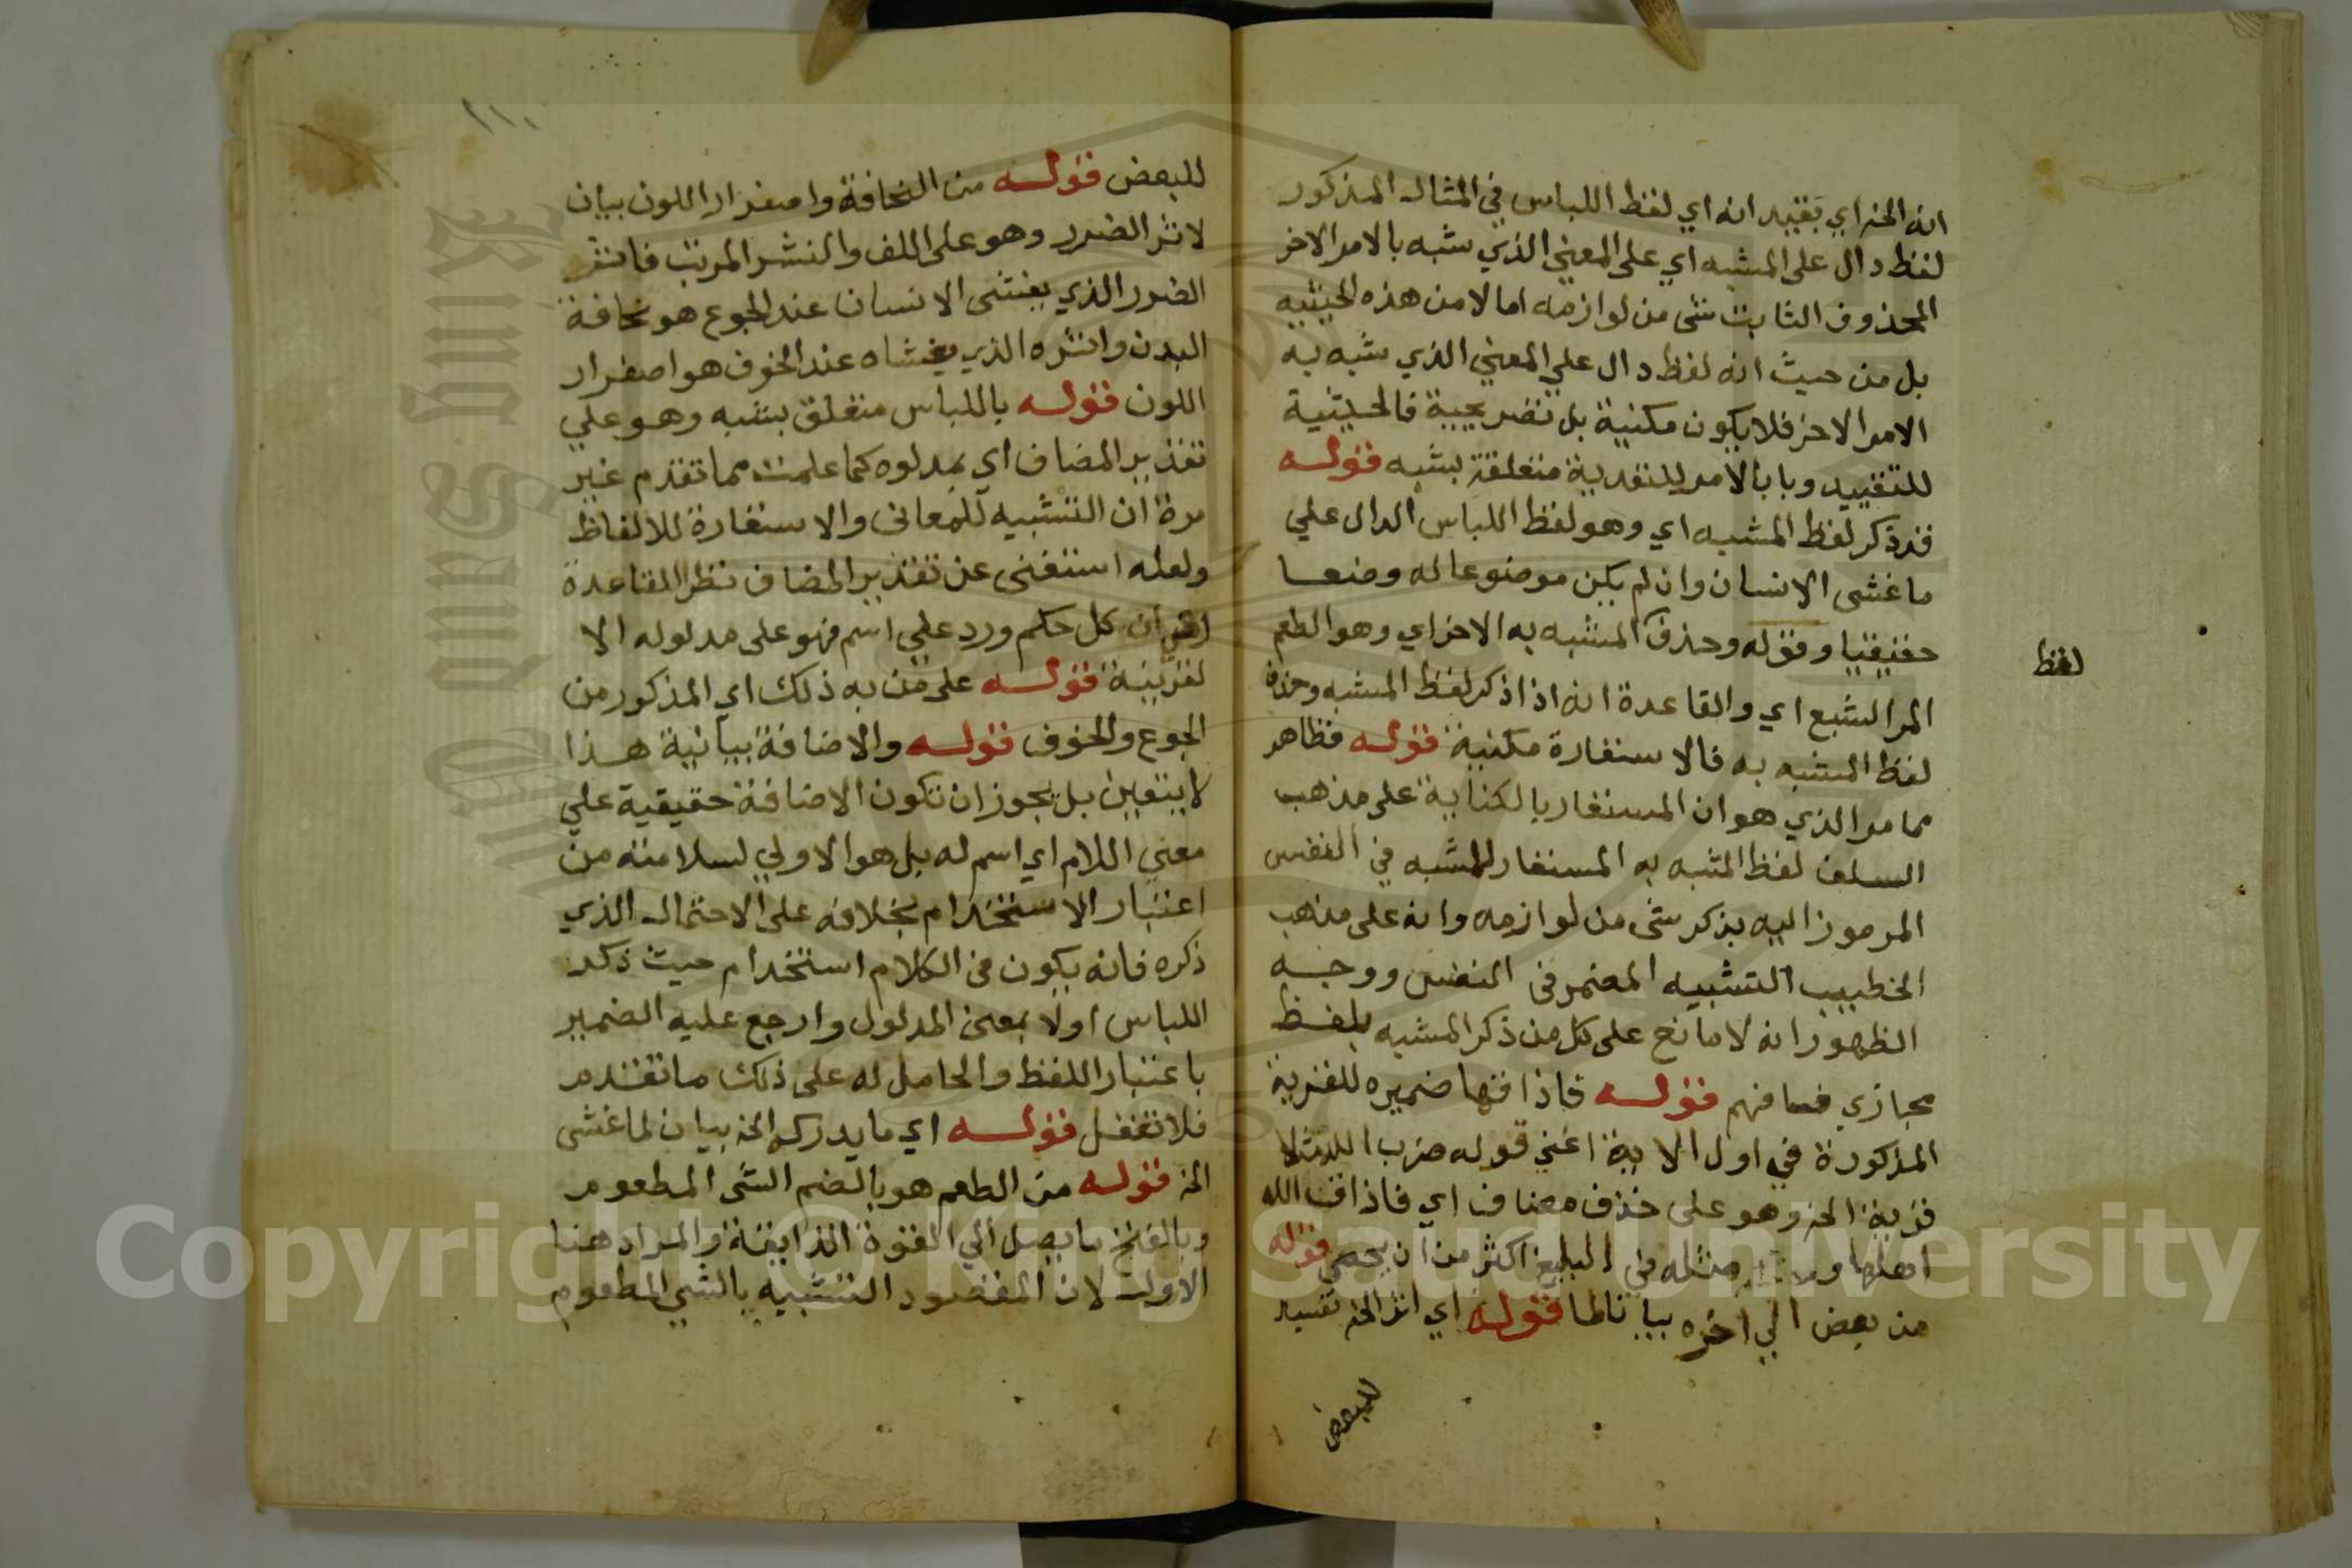 انه الخ اي بقيد انه اي لفظ اللباس في المثال المذكور
لفظ دال على المشبه اي على المعني الذي شبه بالامر الاخر
المحذوف الثابت شى من لوازمه اما لا من هذه الحيثيه
بل من حيث انه لفظ دال علي المعني الذي شبه به
الامر الاخر فلا يكون مكنية بل تصريحية فالحيثية
للتقييد وبا بالامر للتعدية متعلقة بشبه قوله
قد ذكر لفظ المشبه اي وهو لفظ اللباس الدال علي
ما غشى الانسان وان لم يكن موضوعا له وضعا
حقيقيا وقوله وحذف المشبه به الاخر اي وهو الطعم
لفظ
المر البشع اي والقاعدة انه اذا ذكر لفظ المشبه وحذف
لفظ المشبه به فالاستعارة مكنية قوله فظاهر
مما مر الذي هو ان المستعار بالكناية على مذهب
السلف لفظ المشبه به المستعار للمشبه في النفس
المرموز اليه بذكر شى من لوازمه وانه على مذهب
الخطيب التشبيه المضمر فى النفس ووجه
الظهور انه لا مانع على كل من ذكر المشبه بلفظ
مجازي فافهم قوله فاذاقها ضميره للقرية
المذكورة في اول الاية اعني قوله ضرب الله مثلا
قرية الخ وهو على حذف مضاف اي فاذاق الله
اهلها مثله في البليغ اكثر من ان يحصي قوله
من بعض الي اخره بيانا لما قوله اي اثر الخ تفسير
للبعض
١١٠
للبعض قوله من النحافة واصفرار اللون بيان
لاثر الضرر وهو على اللف والنشر المرتب فاثر
الضرر الذي يغشى الانسان عند الجوع هو نحافة
البدن واثره الذي يغشاه عند الخوف هو اصفرار
اللون قوله باللباس متعلق بشبه وهو علي
تقدير المضاف اي بمدلوله كما علمت مما تقدم غير
مرة ان التشبيه للمعانى والاستعارة للالفاظ
ولعله استغنى عن تقدير المضاف نظر القاعدة
ان كل حكم ورد علي اسم فهو على مدلوله الا
لقرينة قوله على من به ذلك اي المذكور من
الجوع والخوف قوله والاضافة بيانية هذا
لا يتعين بل يجوز ان تكون الاضافة حقيقية علي
معني اللام اي اسم له بل هو الاولي لسلامته من
اعتبار الاستخدام بخلافه على الاحتمال الذي
ذكره فانه يكون فى الكلام استخدام حيث ذكر
اللباس اولا بمعنى المدلول وارجع عليه الضمير
باعتبار اللفظ والحامل له على ذلك ما تقدم
فلا تغفل قوله اي ما يدرك الخ بيان لما غشى
الخ قوله من الطعم هو بالضم الشى المطعوم
وبالفتح ما يصل الي القوة الذايقة والمراد هنا
الاول لان المقصود التشبيه بالشي المطعوم
Copyright © King Saud University
King Saud University